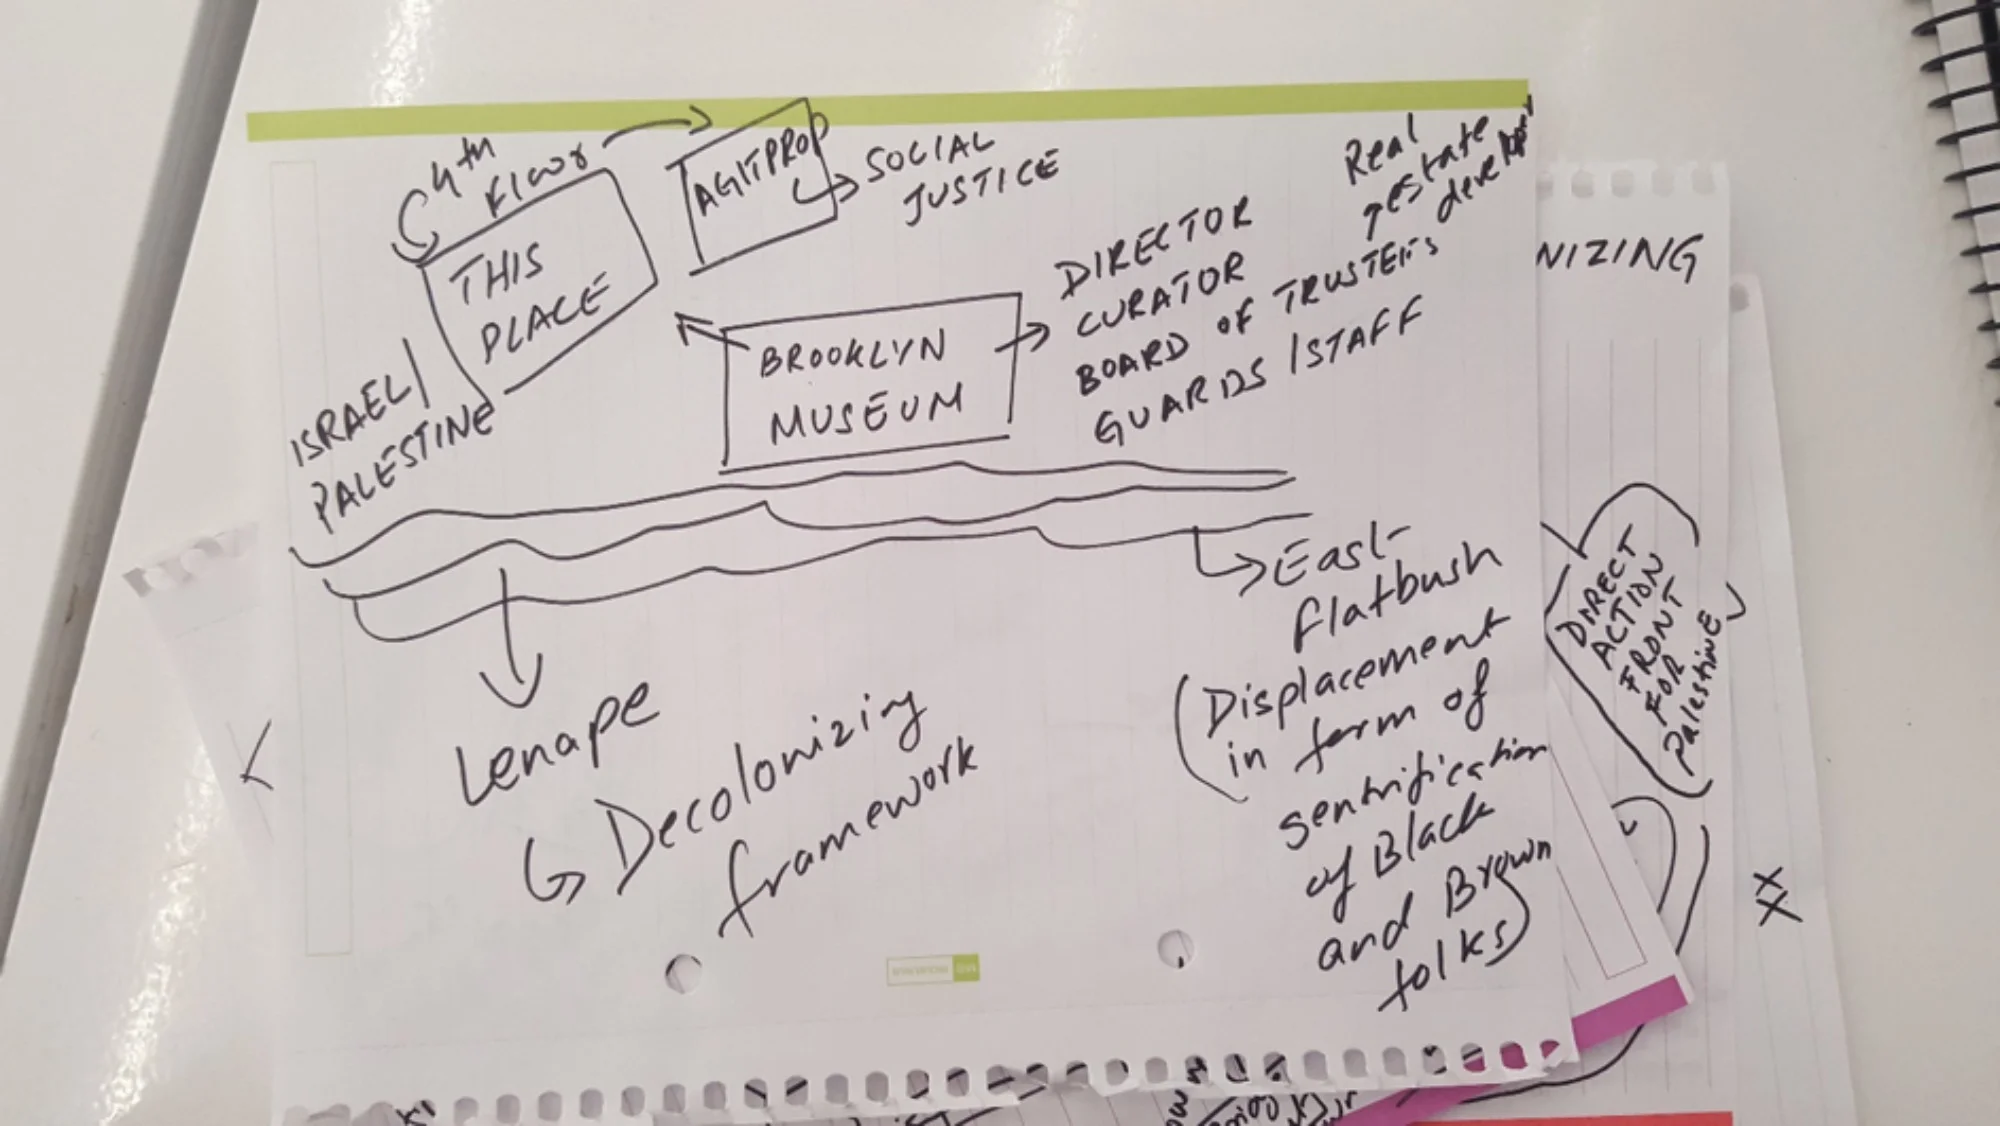 4th
floor
AGITPROP
SOCIAL
JUSTICE
THIS
PLACE
ISRAEL/
PALESTINE
BROOKLYN
MUSEUM
Real
estate
DIRECTOR
CURATOR
BOARD OF TRUSTEES
GUARDS/STAFF
East
flatbush
(Displacement
in form of
gentrification
of Black
and Brown
folks)
Lenape
Decolonizing
framework
NIZING
DIRECT
ACTION
FRONT
FOR
Palestine
XX